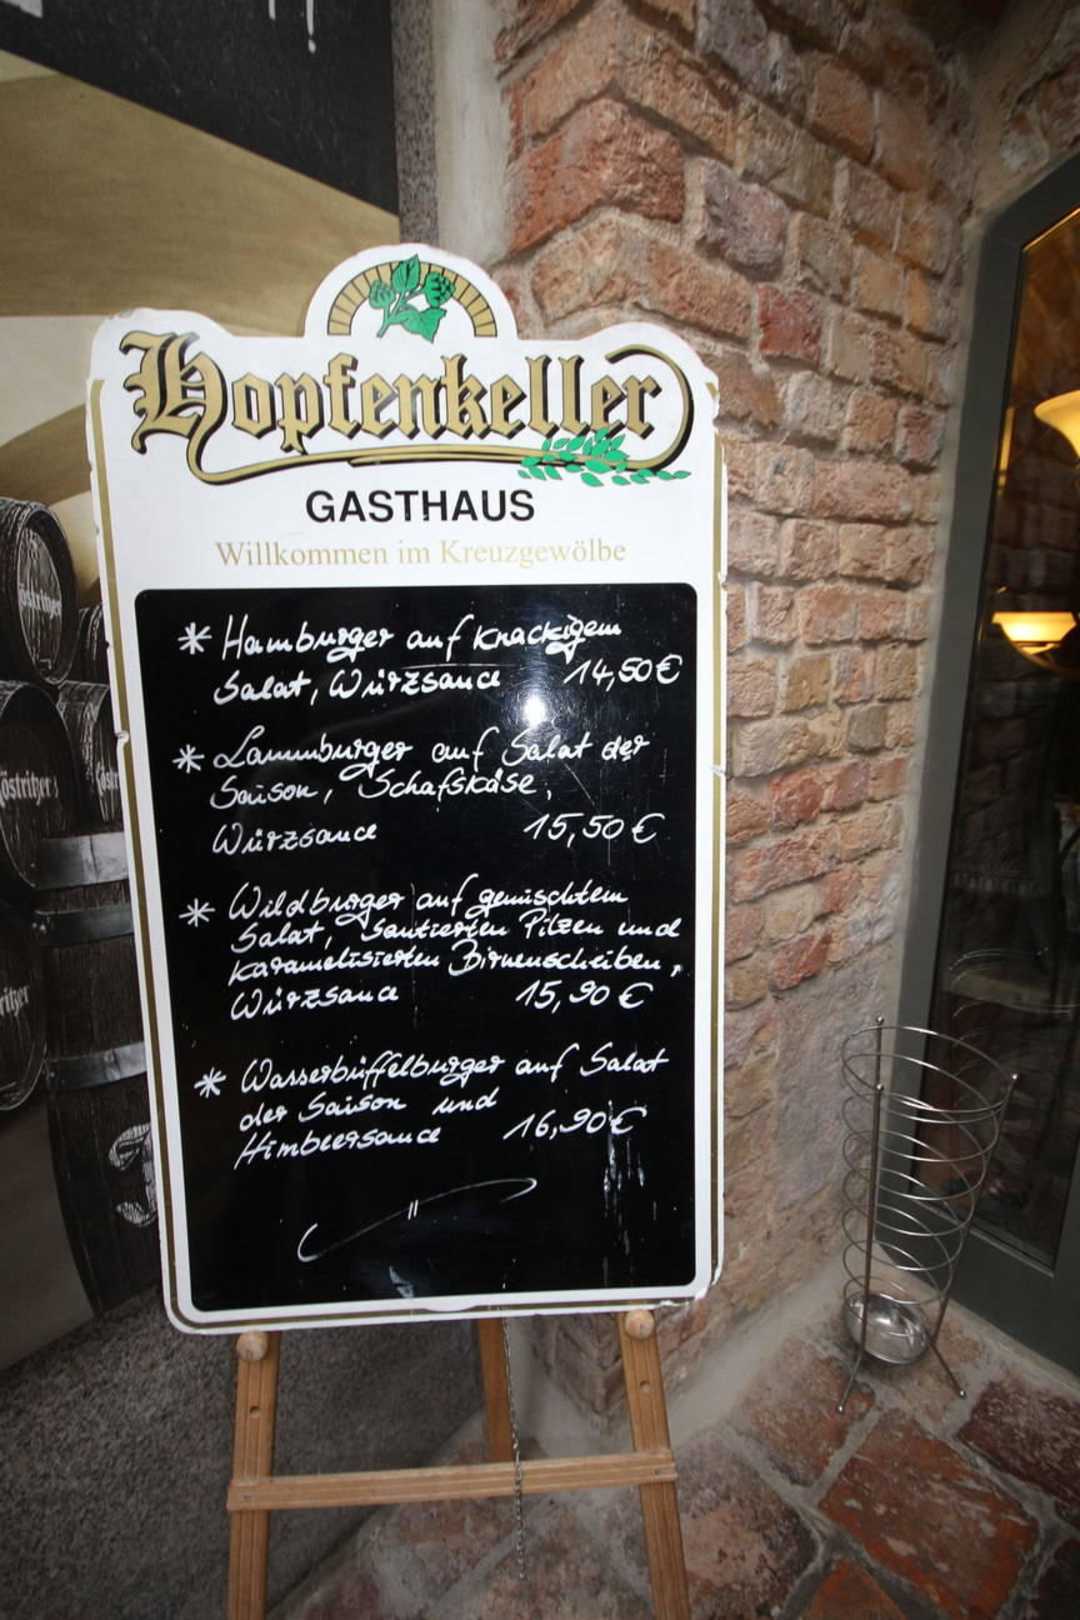 Hopfenkeller
GASTHAUS
Willkommen im Kreuzgewölbe
* Hamburger auf knackigem
Salat, Würzsauce 14,50 €
* Lammburger auf Salat der
Saison, Schafskäse,
Würzsauce 15,50 €
* Wildburger auf gemischtem
Salat, Sautierten Pilzen und
karamelisierten Birnenscheiben,
Würzsauce 15,90 €
* Wasserbüffelburger auf Salat
der Saison und
Himbeersauce 16,90 €
östritzer
östritzer
östr
ritzer